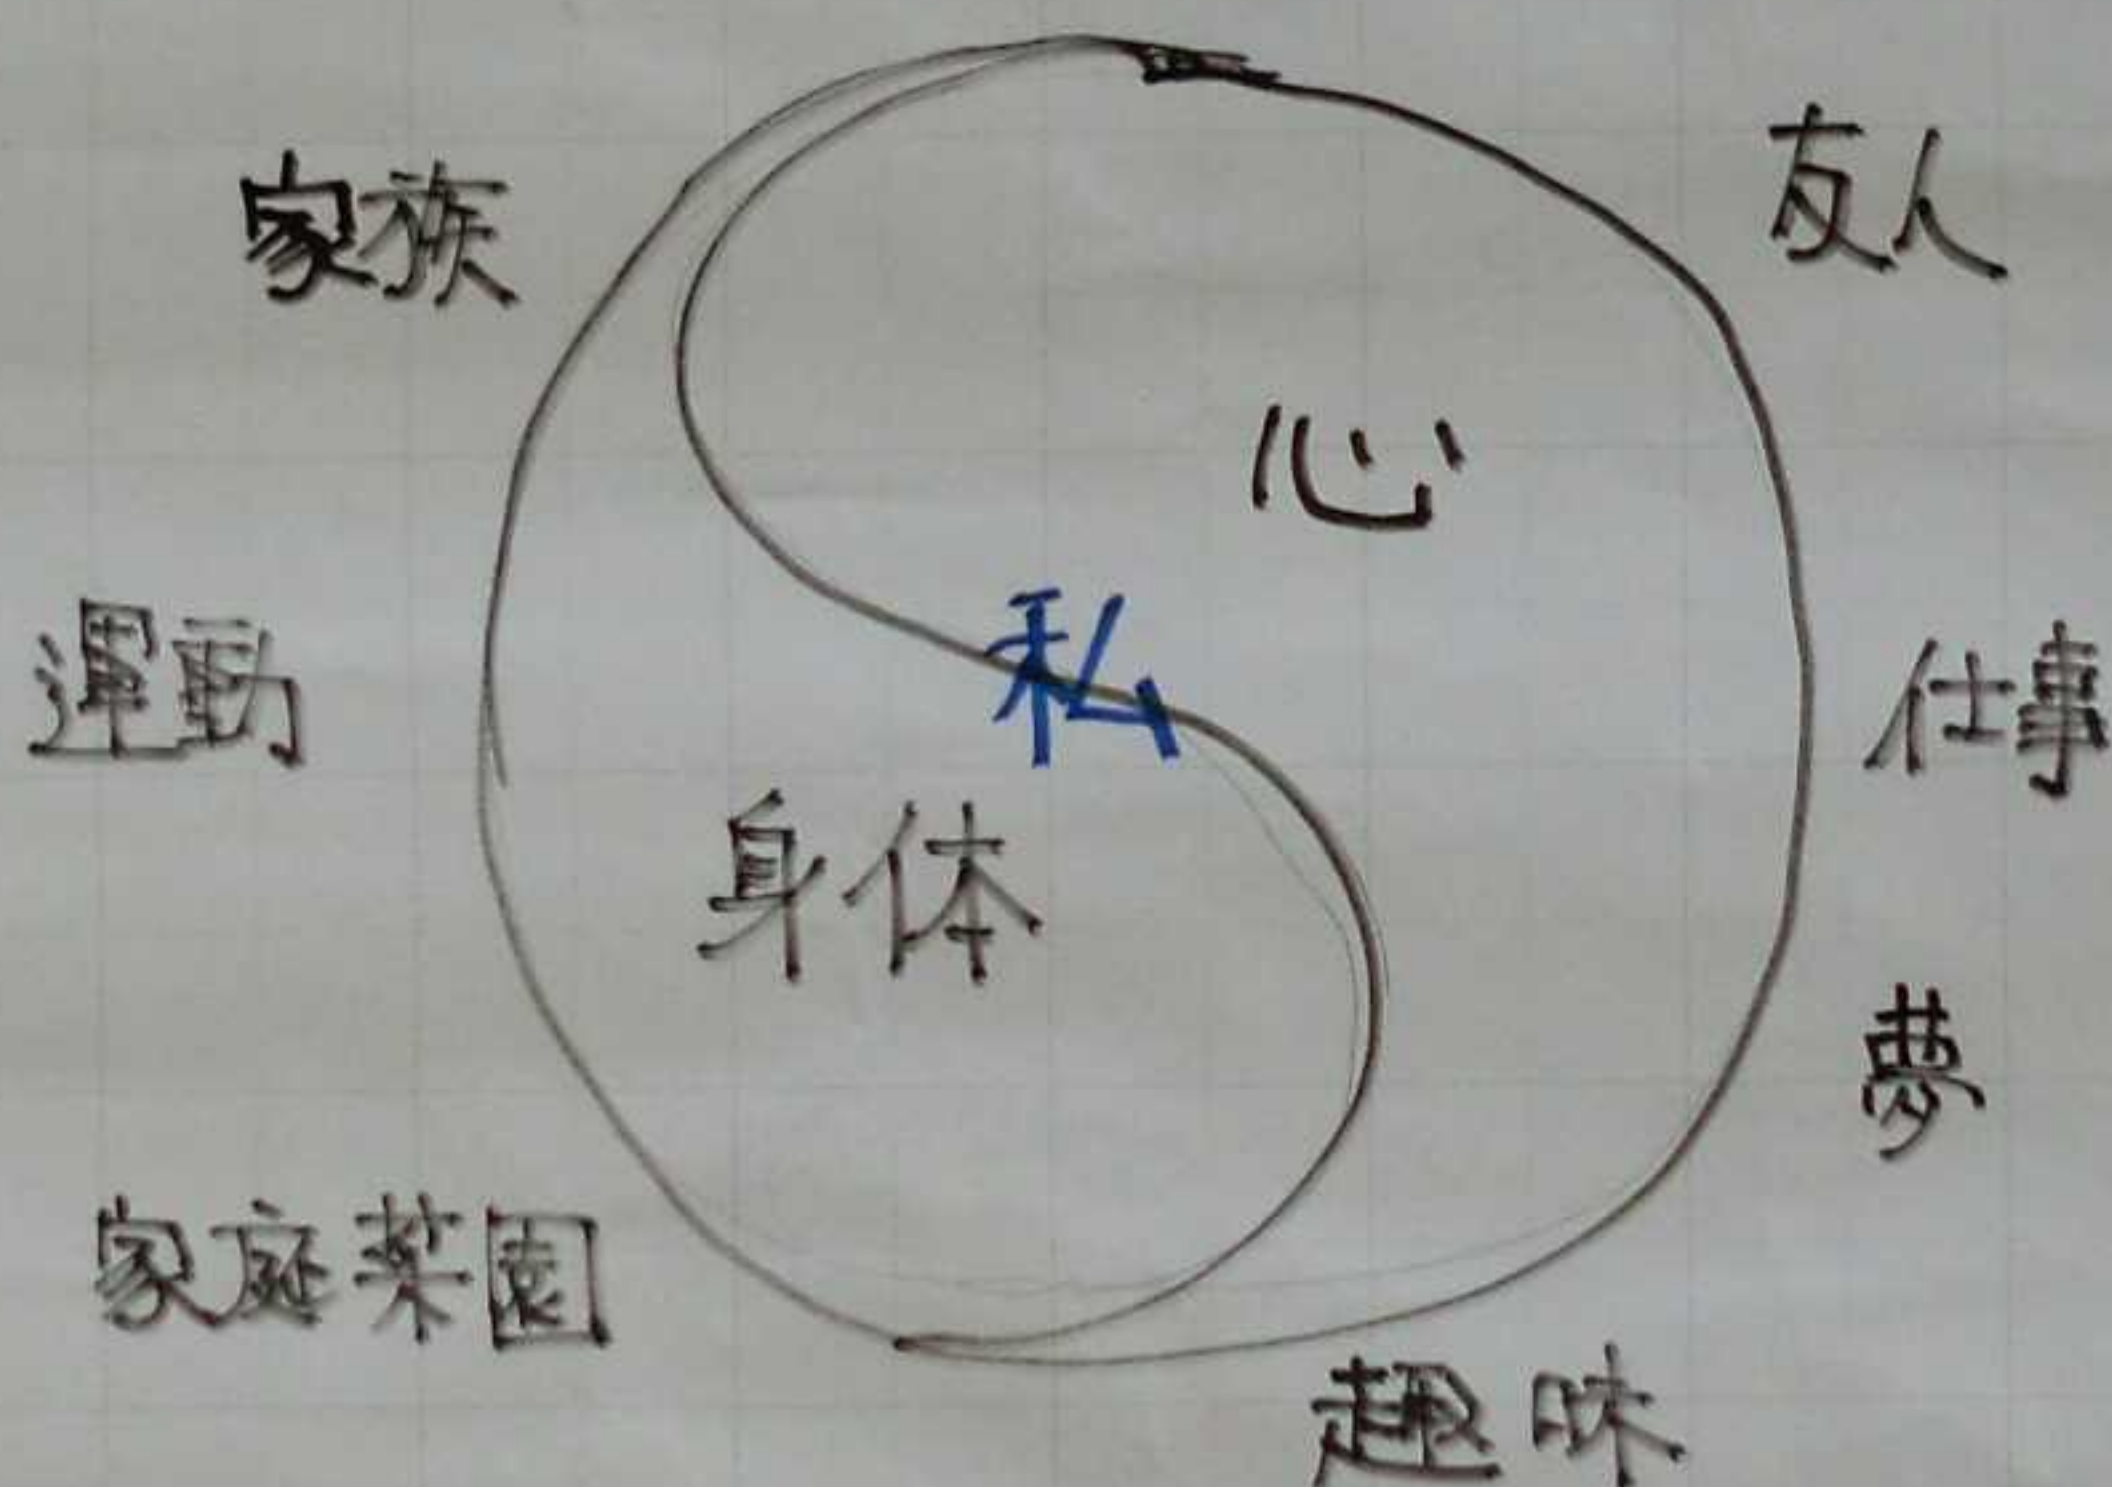 家族
友人
心
私
運動
仕事
身体
夢
家庭菜園
趣味